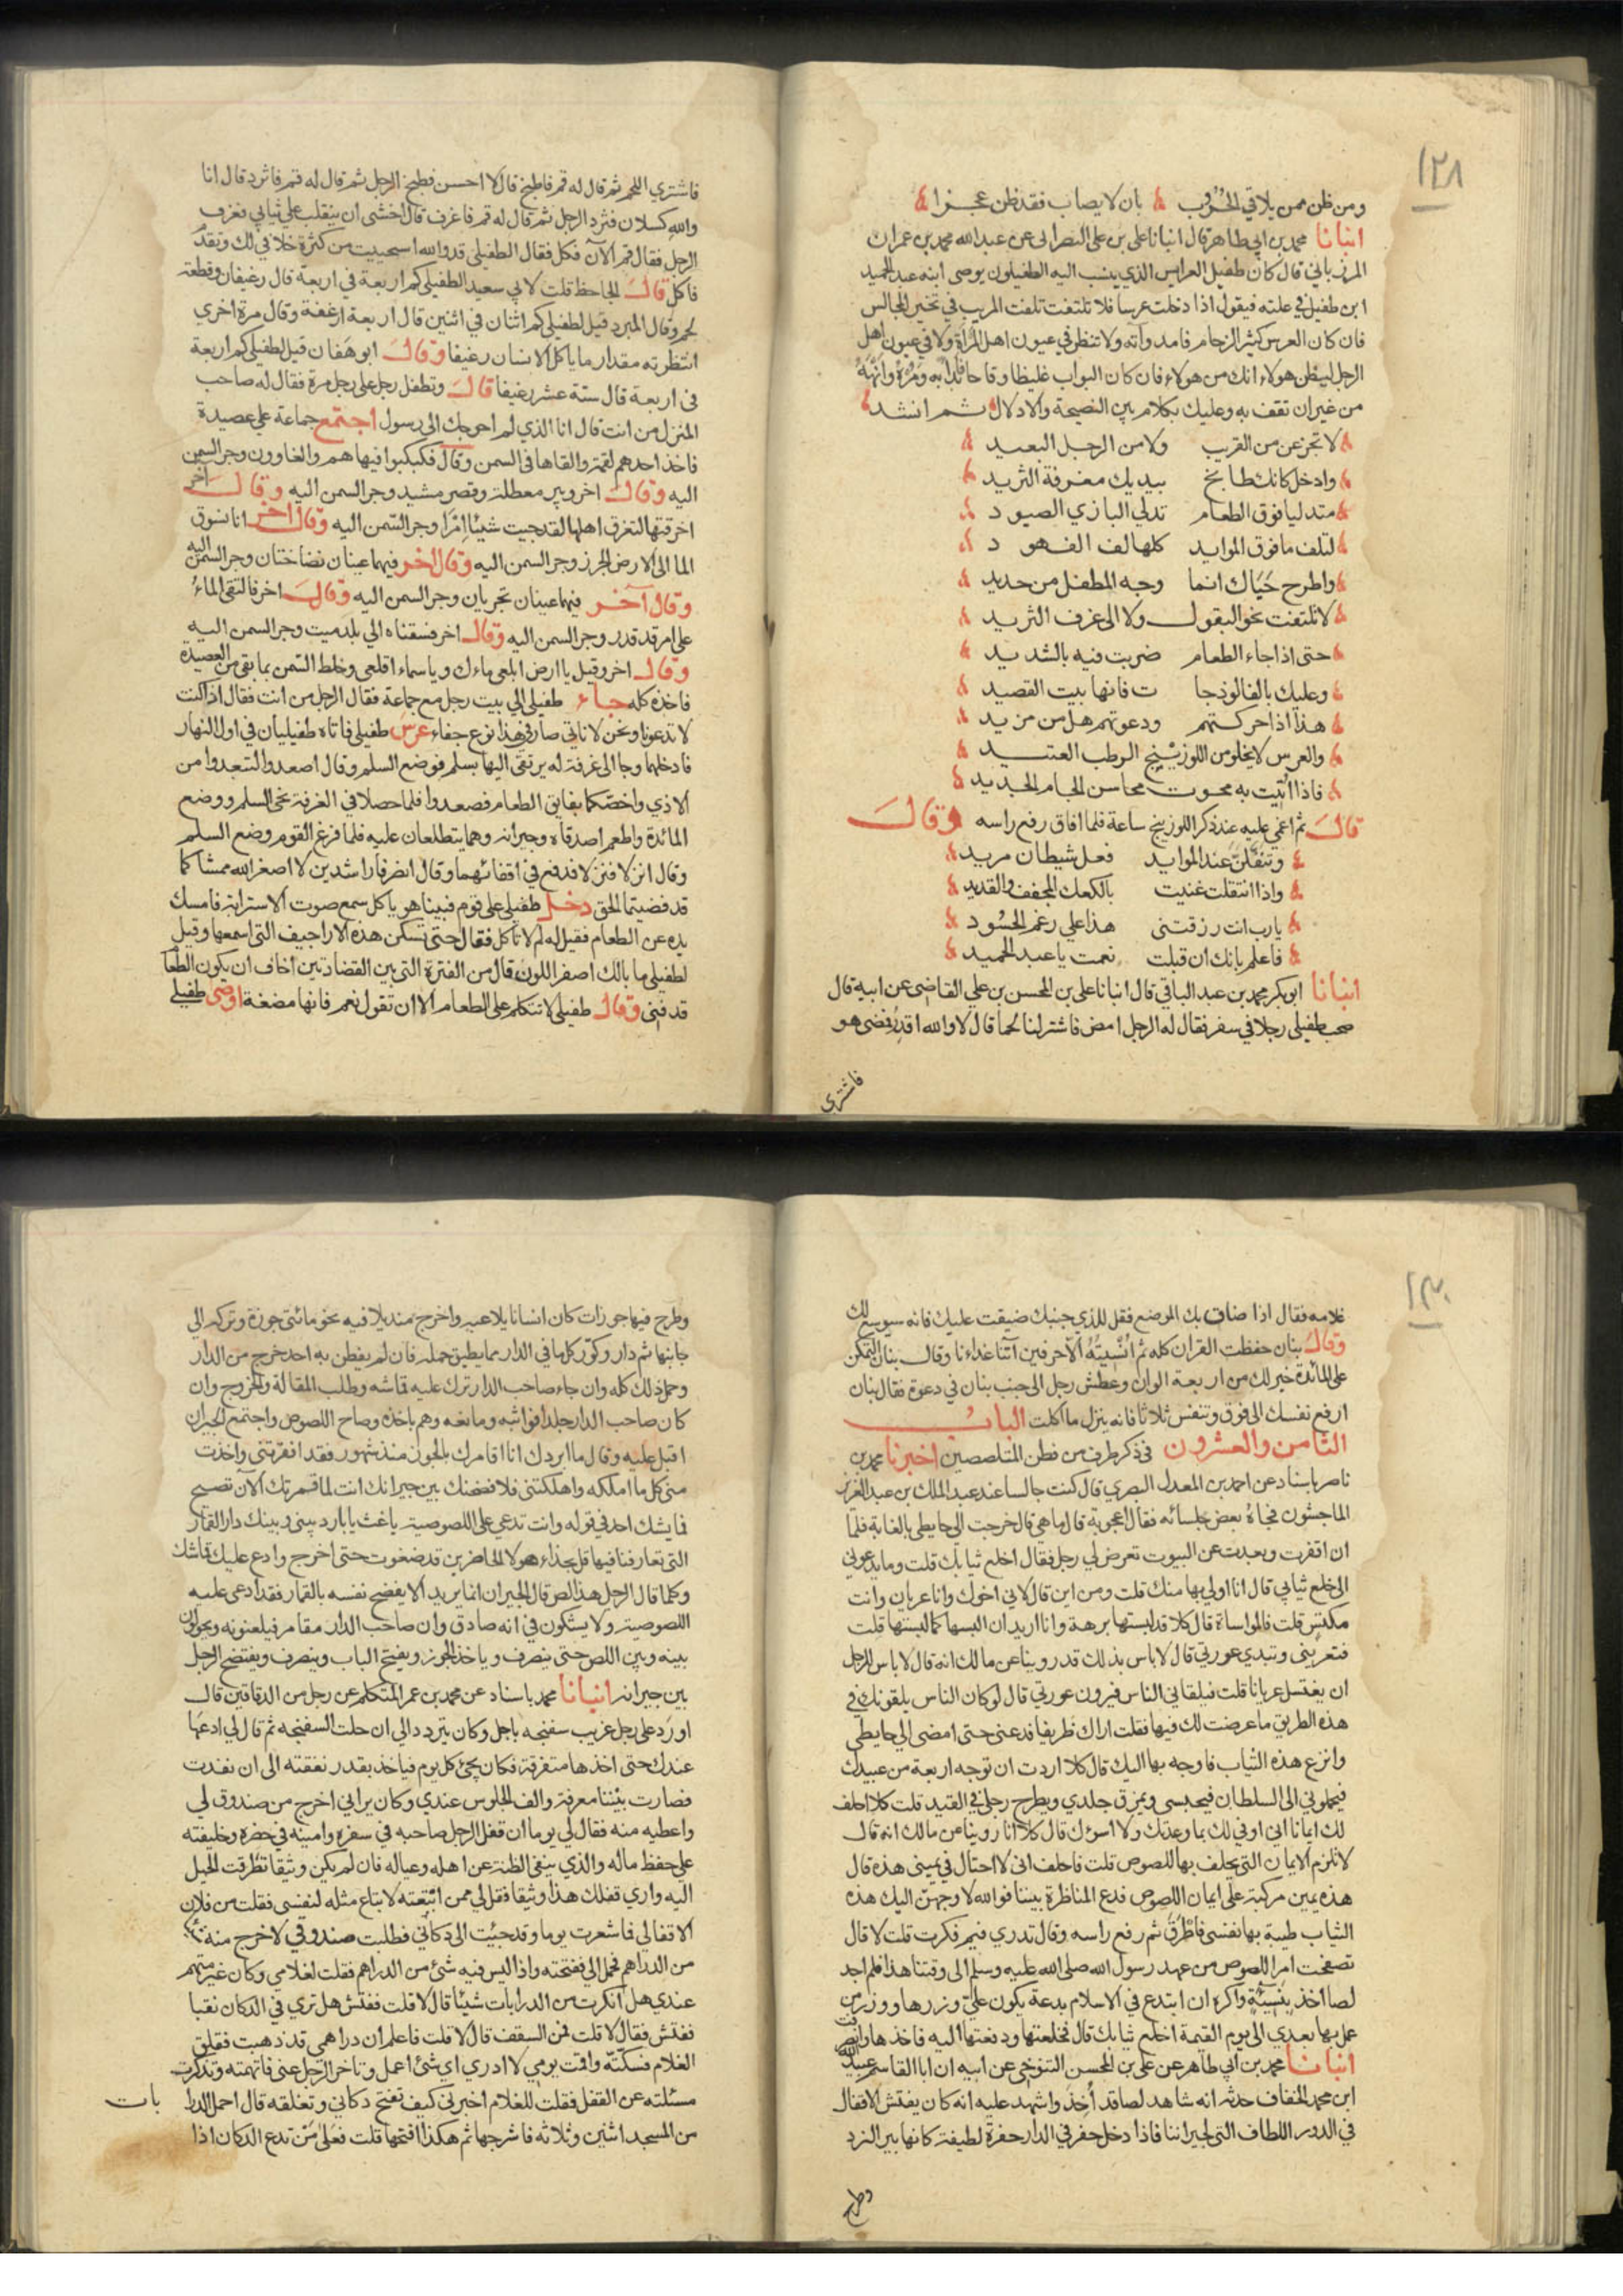 ١٢٨
ومن ظن ممن يلاقي الحروب بان لا يصاب فقد ظن عجزا
انبانا محمد بن ابي طاهر قال انبانا علي بن علي البصرى عن عبد الله محمد بن عمران
المرزباني قال كان طفيل العرايس الذي ينسب اليه الطفيليون يوصى ابنه عبد الحميد
ابن طفيل في علته فيقول اذا دخلت عرسا فلا تلتفت تلفت المريب في تخير المجالس
فان كان العرس كثير الزحام فامد وآته ولا تنظر في عيون اهل المراة ولا في عيون اهل
الرجل ليظن هولاء انك من هولاء فان كان البواب غليظا وقاحا فابدا به ومره وانهه
من غير ان تقف به وعليك بكلام بين النصيحة والادلال ثم انشد
لا تجزعن من القريب ولا من الرجل البعيد
وادخل كانك طابخ بيديك مغرفة الثريد
متدليا فوق الطعام تدلي البازي الصيود
لتلف ما فوق الموايد كلها لف الفهود
واطرح حياك انما وجه المطفل من حديد
لا تلتفت نحو البقول ولا الى غرف الثريد
حتى اذا جاء الطعام ضربت فيه بالشديد
وعليك بالفالوذجات فانها بيت القصيد
هذا اذا حركتهم ودعوتهم هل من مزيد
والعرس لا يخلو من اللوزينج الرطب العتيد
فاذا اتيت به محوت محاسن الجام الجديد
قال ثم اغمي عليه عند ذكر اللوزينج ساعة فلما افاق رفع راسه وقال
وتنقلن عند الموايد فعل شيطان مريد
واذا انتقلت غنيت بالكعك المجفف والقديد
يارب انت رزقتنى هذا علي رغم الحسود
فاعلم بانك ان قبلت نعمت يا عبد الحميد
انبانا ابو بكر محمد بن عبد الباقي قال انبانا علي بن المحسن بن علي القاضى عن ابيه قال
صحب طفيلى رجلا في سفر فقال له الرجل امض فاشتر لنا لحما قال لا والله اقدر فمضى هو
فاشترى
فاشتري اللحم ثم قال له قم فاطبخ قال لا احسن فطبخ الرجل ثم قال له قم فاثرد قال انا
والله كسلان فثرد الرجل ثم قال له قم فاغرف قال اخشى ان ينقلب علي ثيابي فغرف
الرجل فقال قم الآن فكل فقال الطفيلى قد والله استحييت من كثرة خلافي لك وتقدم
فاكل قال الجاحظ قلت لابي سعيد الطفيلي كم اربعة في اربعة قال رغيفان وقطعة
لحم وقال المبرد قيل لطفيلي كم اثنان في اثنين قال اربعة ارغفة وقال مرة اخري
انتظرته مقدار ما ياكل الانسان رغيفا وقال ابو هفان قيل لطفيلي كم اربعة
فى اربعة قال ستة عشر رغيفا قال وتطفل رجل علي رجل مرة فقال له صاحب
المنزل من انت قال انا الذي لم احوجك الى رسول اجتمع جماعة علي عصيدة
فاخذ احدهم لقمة والقاها فى السمن وقال فكبكبوا فيها هم والغاوون وجر السمن
اليه وقال اخر وبير معطلة وقصر مشيد وجر السمن اليه وقال اخر
اخرقتها لتغرق اهلها لقد جيت شيئا امرا وجر السمن اليه وقال اخر انا نسوق
الما الى الارض الجرز وجر السمن اليه وقال اخر فيهما عينان نضاختان وجر السمن اليه
وقال آخر فيهما عينان تجريان وجر السمن اليه وقال اخر فالتقى الماء
على امر قد قدر وجر السمن اليه وقال اخر فسقناه الي بلد ميت وجر السمن اليه
وقال اخر وقيل يا ارض ابلعي ماءك وياسماء اقلعي وخلط السمن بما بقى من العصيدة
فاخذه كله جاء طفيلى الي بيت رجل مع جماعة فقال الرجل من انت فقال اذا كنت
لا تدعونا ونحن لا ناتي صار في هذا نوع جفاء عرس طفيلي فاتاه طفيليان في اول النهار
فادخلهما وجا الى غرفة له يرتقى اليها بسلم فوضع السلم وقال اصعدوا لتبعدوا من
الاذي واخصكما بفايق الطعام فصعدوا فلما حصلا في الغرفة نحى السلم ووضع
المائدة واطعم اصدقاه وجيرانه وهما يتطلعان عليه فلما فرغ القوم وضع السلم
وقال انزلا فنزلا فدفع في اقفائهما وقال انصرفا راشدين لا اصغر الله ممشاكما
قد قضيتما الحق دخل طفيلى على قوم فبينا هو ياكل سمع صوت الاسترابة فامسك
يده عن الطعام فقيل له لم لا تاكل فقال حتى تسكن هذه الاراجيف التى اسمعها وقيل
لطفيلي ما بالك اصفر اللون قال من الفترة التي بين القضادتين اخاف ان يكون الطعا
قد فنى وقال طفيلي لا تتكلم على الطعام الا ان تقول نعم فانها مضغة اوصى طفيلي
١٣٠
غلامه فقال اذا ضاق بك الموضع فقل للذي جنبك ضيقت عليك فانه سيوسع لك
وقال بنان حفظت القران كله ثم انسيته الا حرفين آتنا غداءنا وقال بنان التمكن
على المائدة خير لك من اربعة الوان وعطش رجل الى جنب بنان في دعوة فقال بنان
ارفع نفسك الى فوق وتنفس ثلاثا فانه ينزل ما اكلت الباب
الثامن والعشرون في ذكر طرف من فطن المتلصصين اخبرنا محمد بن
ناصر باسناد عن احمد بن المعدل البصري قال كنت جالسا عند عبد الملك بن عبد العزيز
الماجشون فجاءه بعض جلسائه فقال اعجوبة قال ما هي قال خرجت الى حايطى بالغابة فلما
ان اقفرت وبعدت عن البيوت تعرض لي رجل فقال اخلع ثيابك قلت وما يدعوني
الى خلع ثيابي قال انا اولى بها منك قلت ومن اين قال لاني اخوك وانا عريان وانت
مكتس قلت فالمواساة قال كلا قد لبستها برهة وانا اريد ان البسها كما لبستها قلت
فتعريني وتبدي عورتي قال لا باس بذلك قد روينا عن مالك انه قال لا باس للرجل
ان يغتسل عريانا قلت فيلقاني الناس فيرون عورتي قال لو كان الناس يلقونك في
هذه الطريق ما عرضت لك فيها فقلت اراك ظريفا فدعنى حتى امضى الي حايطى
وانزع هذه الثياب فاوجه بها اليك قال كلا اردت ان توجه اربعة من عبيدك
فيحملوني الى السلطان فيحبسى ويمزق جلدي ويطرح رجلي في القيد قلت كلا احلف
لك ايمانا اني اوفي لك بما وعدتك ولا اسوءك قال كلا انا روينا عن مالك انه قال
لا تلزم الايمان التى يحلف بها للصوص قلت فاحلف اني لا احتال في يمينى هذه قال
هذه يمين مركبة على ايمان اللصوص فدع المناظرة بيننا فوالله لاوجهن اليك هذه
الثياب طيبة بها نفسى فاطرق ثم رفع راسه وقال تدري فيم فكرت قلت لا قال
تصفحت امر اللصوص من عهد رسول الله صلى الله عليه وسلم الى وقتنا هذا فلم اجد
لصا اخذ بنسيئة واكره ان ابتدع في الاسلام بدعة يكون علي وزرها ووزر من
عمل بها بعدي الى يوم القيمة اخلع ثيابك قال فخلعتها ودفعتها اليه فاخذها وانصرفت
انبانا محمد بن ابي طاهر عن علي بن المحسن التنوخي عن ابيه ان ابا القاسم عبيد الله
ابن محمد الخفاف حدثه انه شاهد لصا قد اُخِذَ واشهد عليه انه كان يفتش الاقفال
في الدور اللطاف التى لجيراننا فاذا دخل حفر في الدار حفرة لطيفة كانها بير النرد
وطرح
وطرح فيها جوزات كان انسانا يلاعبه واخرج منديلا فيه نحو مائتى جوزة وتركه الي
جانبها ثم دار وكور كل ما في الدار مما يطيق حمله فان لم يفطن به احد خرج من الدار
وحمل ذلك كله وان جاء صاحب الدار ترك عليه قماشه وطلب المقالة والخروج وان
كان صاحب الدار جلدا فواثبه ومانعه وهم باخذه وصاح اللصوص واجتمع الجيران
اقبل عليه وقال ما ابردك انا اقامرك بالجوز منذ شهور فقد افقرتنى واخذت
منى كل ما املكه واهلكتنى فلا فضحتك بين جيرانك انت لما قمرتك الان تصيح
فما يشك احد في قوله وانت تدعي علي اللصوصية ياغث يا بارد بينى وبينك دار القمار
التى تعارفنا فيها قل بحذاء هولا الحاضرين قد ضغوت حتى اخرج وادع عليك قماشك
وكلما قال الرجل هذا لص قال الجيران انما يريد الا يفضح نفسه بالقمار فقد ادعى عليه
اللصوصية ولا يشكون في انه صادق وان صاحب الدار مقامر فيلعنونه ويحولون
بينه وبين اللص حتى ينصرف وياخذ الجوز ويفتح الباب وينصرف ويفتضح الرجل
بين جيرانه انبانا محمد باسناد عن محمد بن عمر المتكلم عن رجل من الدقاقين قال
اورد على رجل غريب سفتجه باجل وكان يتردد الي ان حلت السفتجه ثم قال لي ادعها
عندك حتى اخذها متفرقة فكان يجئ كل يوم فياخذ بقدر نفقته الى ان نفدت
فصارت بيننا معرفة والف الجلوس عندي وكان يراني اخرج من صندوق لي
واعطيه منه فقال لي يوما ان قفل الرجل صاحبه في سفره وامينه في حضره وخليفته
علي حفظ ماله والذي ينفي الظنة عن اهله وعياله فان لم يكن وثيقا تطرقت الحيل
اليه واري قفلك هذا وثيقا فقل لي ممن ابتعته لابتاع مثله لنفسى فقلت من فلان
الاقفالي فما شعرت يوما وقد جيئت الى دكاني فطلبت صندوقي لاخرج منه شيئا
من الدراهم فحمل الي ففتحته واذا ليس فيه شئ من الدراهم فقلت لغلامي وكان غير متهم
عندي هل انكرت من الدرابات شيئا قال لا قلت ففتش هل تري في الدكان نقبا
ففتش فقال لا قلت فمن السقف قال لا قلت فاعلم ان دراهمي قد ذهبت فقلق
الغلام فسكنته واقمت يومي لا ادري اي شئ اعمل وتاخر الرجل عنى فاتهمته وتذكرت
مسئلته عن القفل فقلت للغلام اخبرني كيف تفتح دكاني وتغلقه قال احمل الدرا بات
من المسجد اثنين وثلاثه فاشرجها ثم هكذا افتحها قلت فعلى من تدع الدكان اذا